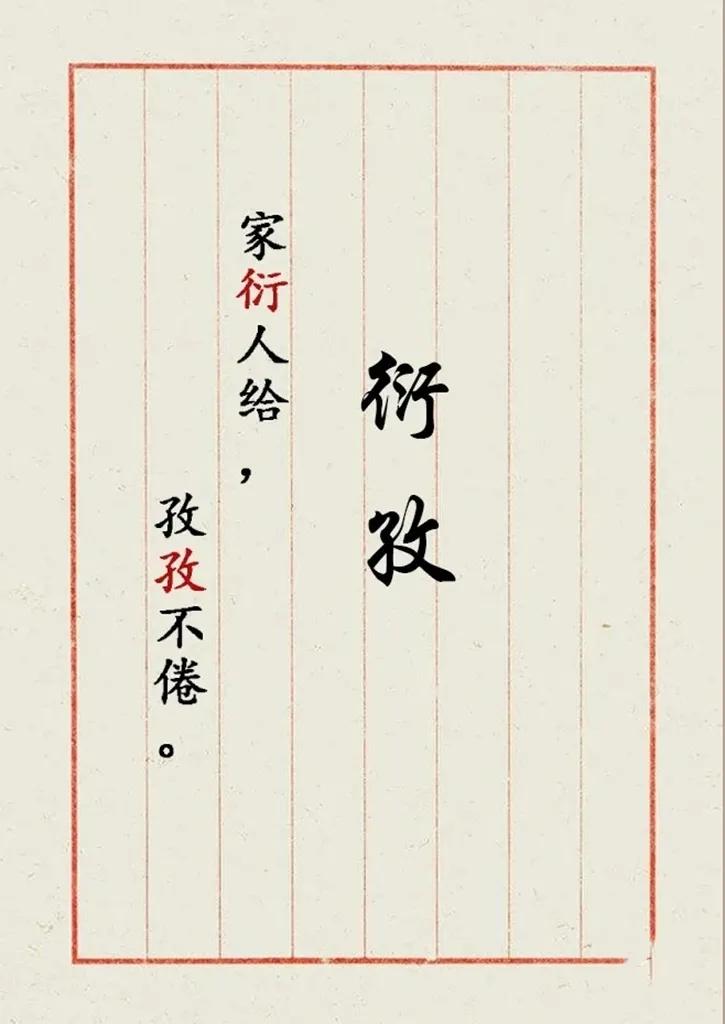 衍孜
家衍人给，
孜孜不倦。